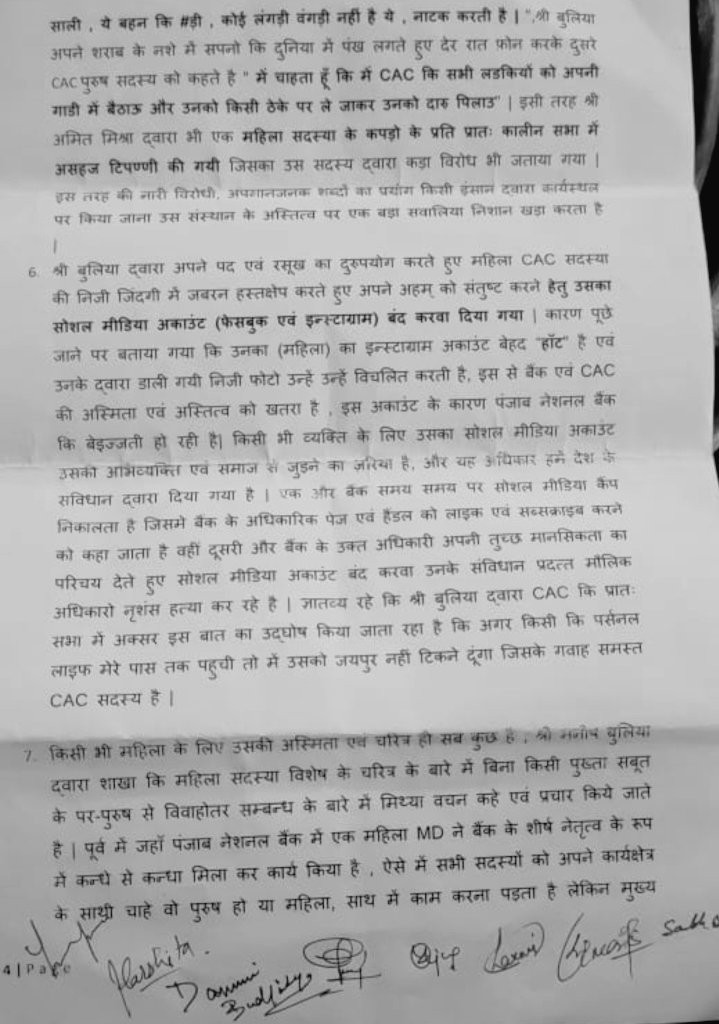 साली , ये बहन कि #ड़ी , कोई लंगड़ी वंगड़ी नहीं है ये , नाटक करती है | ",श्री बुलिया
अपने शराब के नशे में सपनो कि दुनिया में पंख लगते हुए देर रात फ़ोन करके दुसरे
CAC पुरुष सदस्य को कहते है " में चाहता हूँ कि में CAC कि सभी लडकियों को अपनी
गाडी में बैठाऊ और उनको किसी ठेके पर ले जाकर उनको दारु पिलाउ" | इसी तरह श्री
अमित मिश्रा द्वारा भी एक महिला सदस्या के कपड़ो के प्रति प्रातः कालीन सभा में
असहज टिपण्णी की गयी जिसका उस सदस्य द्वारा कड़ा विरोध भी जताया गया |
इस तरह की नारी विरोधी, अपमानजनक शब्दों का प्रयोग किसी इंसान द्वारा कार्यस्थल
पर किया जाना उस संस्थान के अस्तित्व पर एक बड़ा सवालिया निशान खड़ा करता है
|
6. श्री बुलिया द्वारा अपने पद एवं रसूख का दुरुपयोग करते हुए महिला CAC सदस्या
की निजी जिंदगी में जबरन हस्तक्षेप करते हुए अपने अहम् को संतुष्ट करने हेतु उसका
सोशल मीडिया अकाउंट (फेसबुक एवं इन्स्टाग्राम) बंद करवा दिया गया | कारण पूछे
जाने पर बताया गया कि उनका (महिला) का इन्स्टाग्राम अकाउंट बेहद "हॉट" है एवं
उनके द्वारा डाली गयी निजी फोटो उन्हें उन्हें विचलित करती है, इस से बैंक एवं CAC
की अस्मिता एवं अस्तित्व को खतरा है , इस अकाउंट के कारण पंजाब नेशनल बैंक
कि बेइज्जती हो रही है| किसी भी व्यक्ति के लिए उसका सोशल मीडिया अकाउंट
उसकी अभिव्यक्ति एवं समाज से जुड़ने का ज़रिया है, और यह अधिकार हमें देश के
संविधान द्वारा दिया गया है | एक और बैंक समय समय पर सोशल मीडिया कैंप
निकालता है जिसमे बैंक के अधिकारिक पेज एवं हैंडल को लाइक एवं सब्सक्राइब करने
को कहा जाता है वहीं दूसरी और बैंक के उक्त अधिकारी अपनी तुच्छ मानसिकता का
परिचय देते हुए सोशल मीडिया अकाउंट बंद करवा उनके संविधान प्रदत्त मौलिक
अधिकारो नृशंस हत्या कर रहे है | ज्ञातव्य रहे कि श्री बुलिया द्वारा CAC कि प्रातः
सभा में अक्सर इस बात का उद्घोष किया जाता रहा है कि अगर किसी कि पर्सनल
लाइफ मेरे पास तक पहुची तो में उसको जयपुर नहीं टिकने दूंगा जिसके गवाह समस्त
CAC सदस्य है |
7. किसी भी महिला के लिए उसकी अस्मिता एवं चरित्र ही सब कुछ है , श्री मनीष बुलिया
द्वारा शाखा कि महिला सदस्या विशेष के चरित्र के बारे में बिना किसी पुख्ता सबूत
के पर-पुरुष से विवाहोतर सम्बन्ध के बारे में मिथ्या वचन कहे एवं प्रचार किये जाते
है | पूर्व में जहाँ पंजाब नेशनल बैंक में एक महिला MD ने बैंक के शीर्ष नेतृत्व के रूप
में कन्धे से कन्धा मिला कर कार्य किया है , ऐसे में सभी सदस्यों को अपने कार्यक्षेत्र
के साथी चाहे वो पुरुष हो या महिला, साथ में काम करना पड़ता है लेकिन मुख्य
4 | Page
Harshita